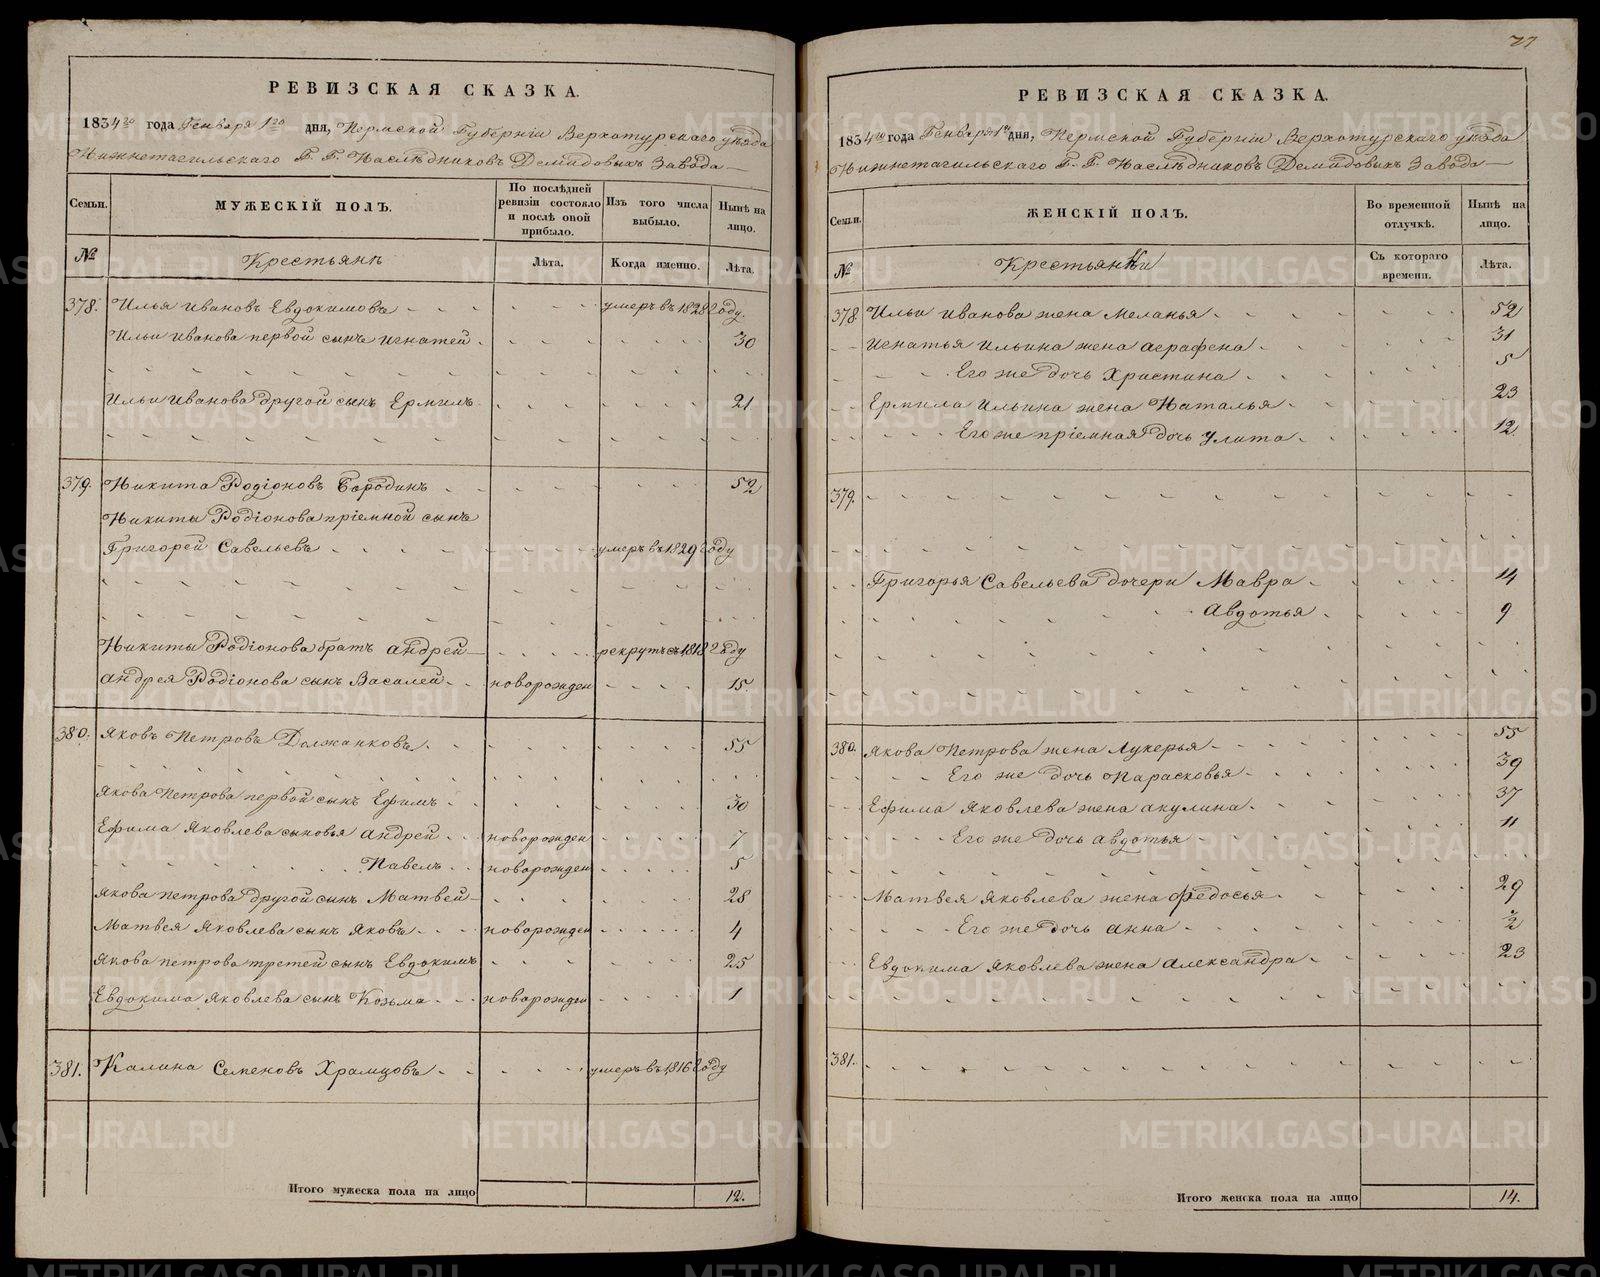 РЕВИЗСКАЯ СКАЗКА.
1834го года Генваря 1го дня, Пермской Губерніи Верхотурскаго уѣзда
Нижнетагильскаго Г. Г. Наслѣдниковъ Демидовыхъ Завода
Семьи.
МУЖЕСКІЙ ПОЛЪ.
По послѣдней ревизіи состояло и послѣ оной прибыло.
Изъ того числа выбыло.
Нынѣ на лицо.
№
Крестьянъ
Лѣта.
Когда именно.
Лѣта.
378. Илья Ивановъ Евдокимовъ умеръ въ 1828 году.
Ильи Иванова первой сынъ Игнатей 30
Ильи Иванова другой сынъ Ермилъ 21
379. Никита Родіоновъ Бородинъ 52
Никиты Родіонова пріемной сынъ
Григорей Савельевъ умеръ въ 1829 году
Никиты Родіонова братъ Андрей рекрутъ съ 1818 году
Андрея Родіонова сынъ Васалей новорожден 15.
380. Яковъ Петровъ Должанковъ 55
Якова Петрова первой сынъ Ефимъ 30
Ефима Яковлева сыновья Андрей новорожден 7
Павелъ новорожден 5
Якова Петрова другой сынъ Матвей 28
Матвея Яковлева сынъ Яковъ новорожден 4
Якова Петрова третей сынъ Евдокимъ 25
Евдокима Яковлева сынъ Козьма новорожден 1
381. Калина Семеновъ Храмцовъ умеръ въ 1816 году
Итого мужеска пола на лицо 12.
РЕВИЗСКАЯ СКАЗКА.
1834го года Генваря 1го дня, Пермской Губерніи Верхотурскаго уѣзда
Нижнетагильскаго Г. Г. Наслѣдниковъ Демидовыхъ Завода
Семьи.
ЖЕНСКІЙ ПОЛЪ.
Во временной отлучкѣ.
Нынѣ на лицо.
№
Крестьянки
Съ котораго времени.
Лѣта.
378. Ильи Иванова жена Меланья 52
Игнатья Ильина жена Аграфена 31
Его же дочь Христина 5
Ермила Ильина жена Наталья 23
Его же пріемная дочь Улита 12.
379.
Григорья Савельева дочери Мавра 14
Авдотья 9
380. Якова Петрова жена Лукерья 55
Его же дочь Парасковья 39
Ефима Яковлева жена Акулина 37
Его же дочь Авдотья 11
Матвея Яковлева жена Федосья 29
Его же дочь Анна ½
Евдокима Яковлева жена Александра 23
381.
Итого женска пола на лицо 14.
METRIKI.GASO-URAL.RU